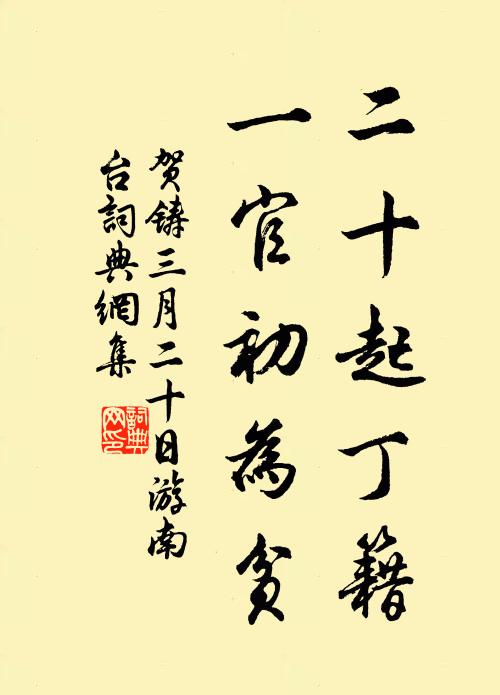 二十起丁籍
一官初為貧
贺鑄三月二十日游南
台詞典網集
詞典
网印